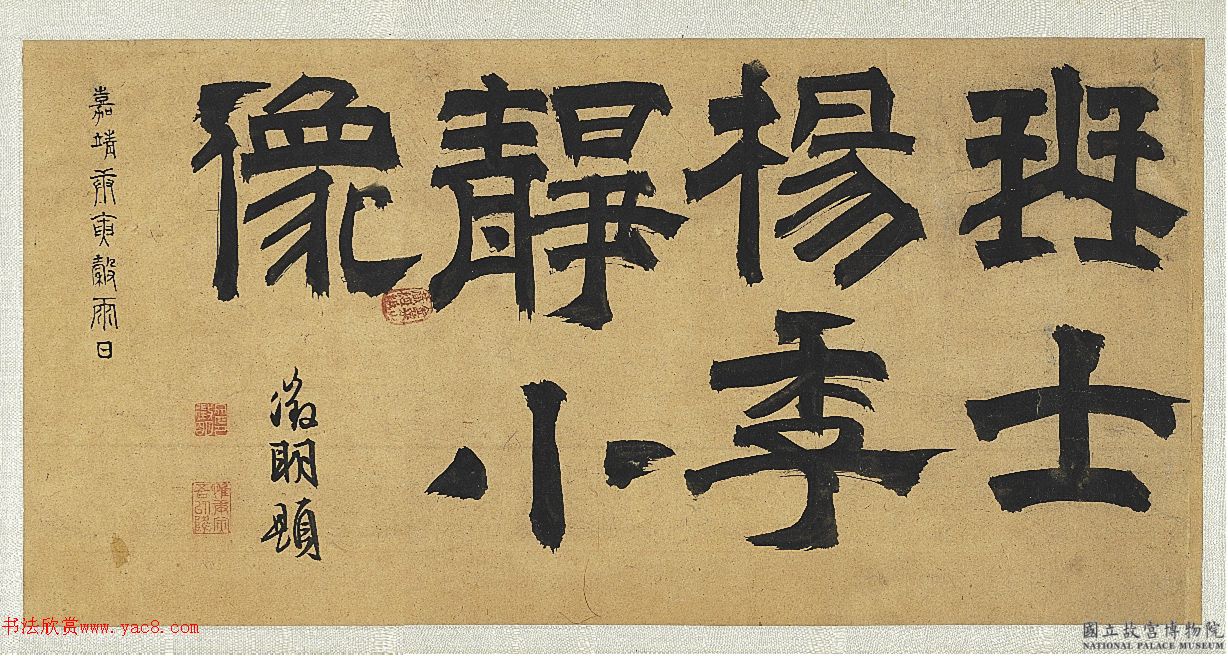 珡士
楊季
靜小
像
徵明題
嘉靖庚寅穀雨日
惟庚寅吾以降
书法欣赏www.yac8.com
國立故宮博物院
NATIONAL PALACE MUSEUM